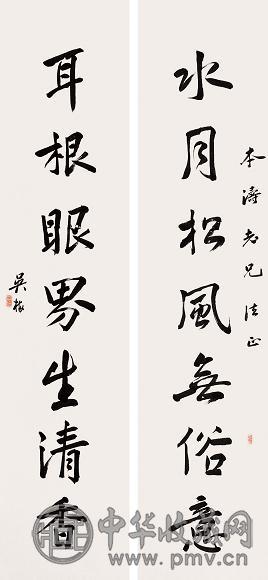 水月松風無俗意
本濤老兄法正
耳根眼界生清香
吳稼
中华收藏网
www.pmv.cn